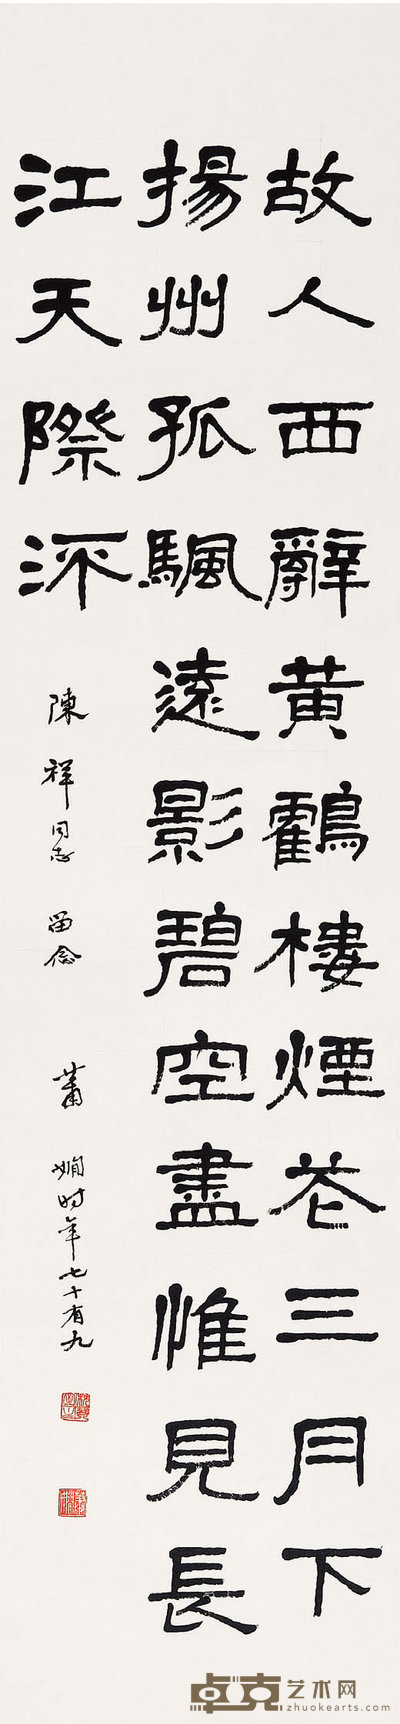 故人西辭黄鶴樓煙花三月下
揚州孤颿遠影碧空盡惟見長
江天際流
陳祥同志 留念 蕭嫻時年七十有九
卓克艺术网
zhuokearts.com